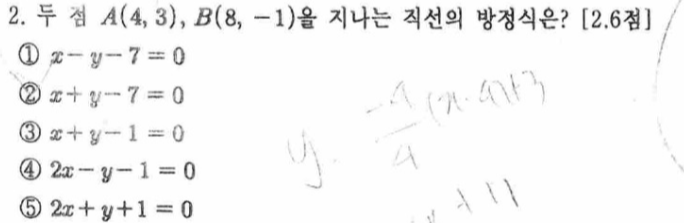 2. 두 점 A(4, 3), B(8, −1)을 지나는 직선의 방정식은? [2.6점]
① x − y − 7 = 0
② x + y − 7 = 0
③ x + y − 1 = 0
④ 2x − y − 1 = 0
⑤ 2x + y + 1 = 0